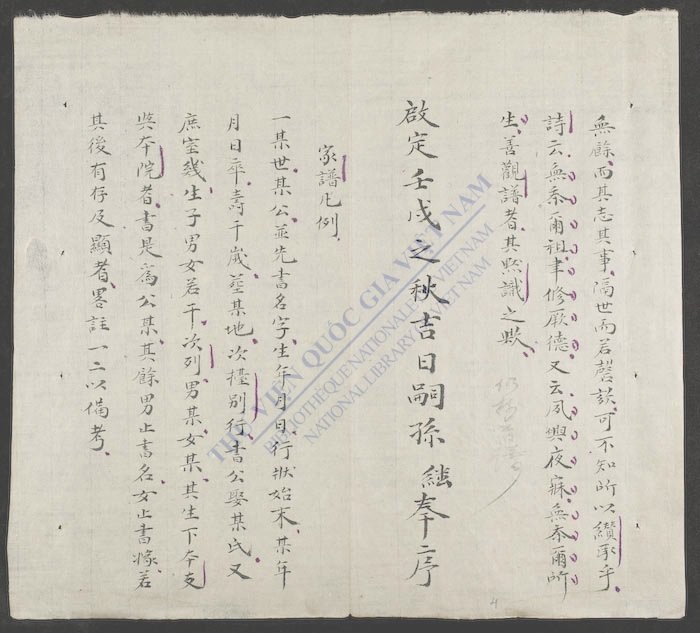 無餘而其志其事隔世而若磬欬可不知所以纘承乎
詩云無忝爾祖聿修厥德又云夙興夜寐無忝爾所
生善觀譜者其默識之歟
啟定壬戌之秋吉日嗣孫繼奉序
家譜凡例
一某世某公並先書名字生年月日行狀始末某年
月日卒壽干歲塟某地次擡別行書公娶某氏又
庶室幾生子男女若干次列男某女某其生下夲支
吳夲院者書是為公某其餘男止書名女止書嫁若
其後有存及顯者畧註一二以備考
THƯ VIỆN QUỐC GIA VIỆT NAM
BIBLIOTHÈQUE NATIONALE DU VIETNAM
NATIONAL LIBRARY OF VIETNAM
4